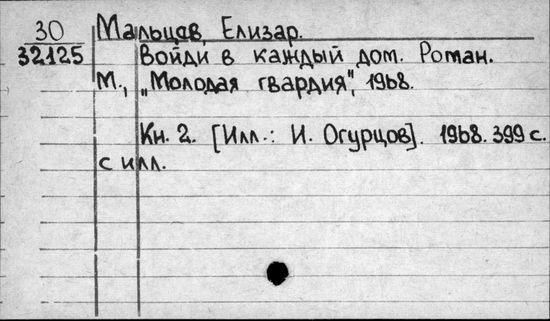 30
32125
Мальцев, Елизар.
Войди в каждый дом. Роман.
М., "Молодая гвардия", 1968.
Кн. 2. [Илл.: И. Огурцов]. 1968. 399 с.
с илл.